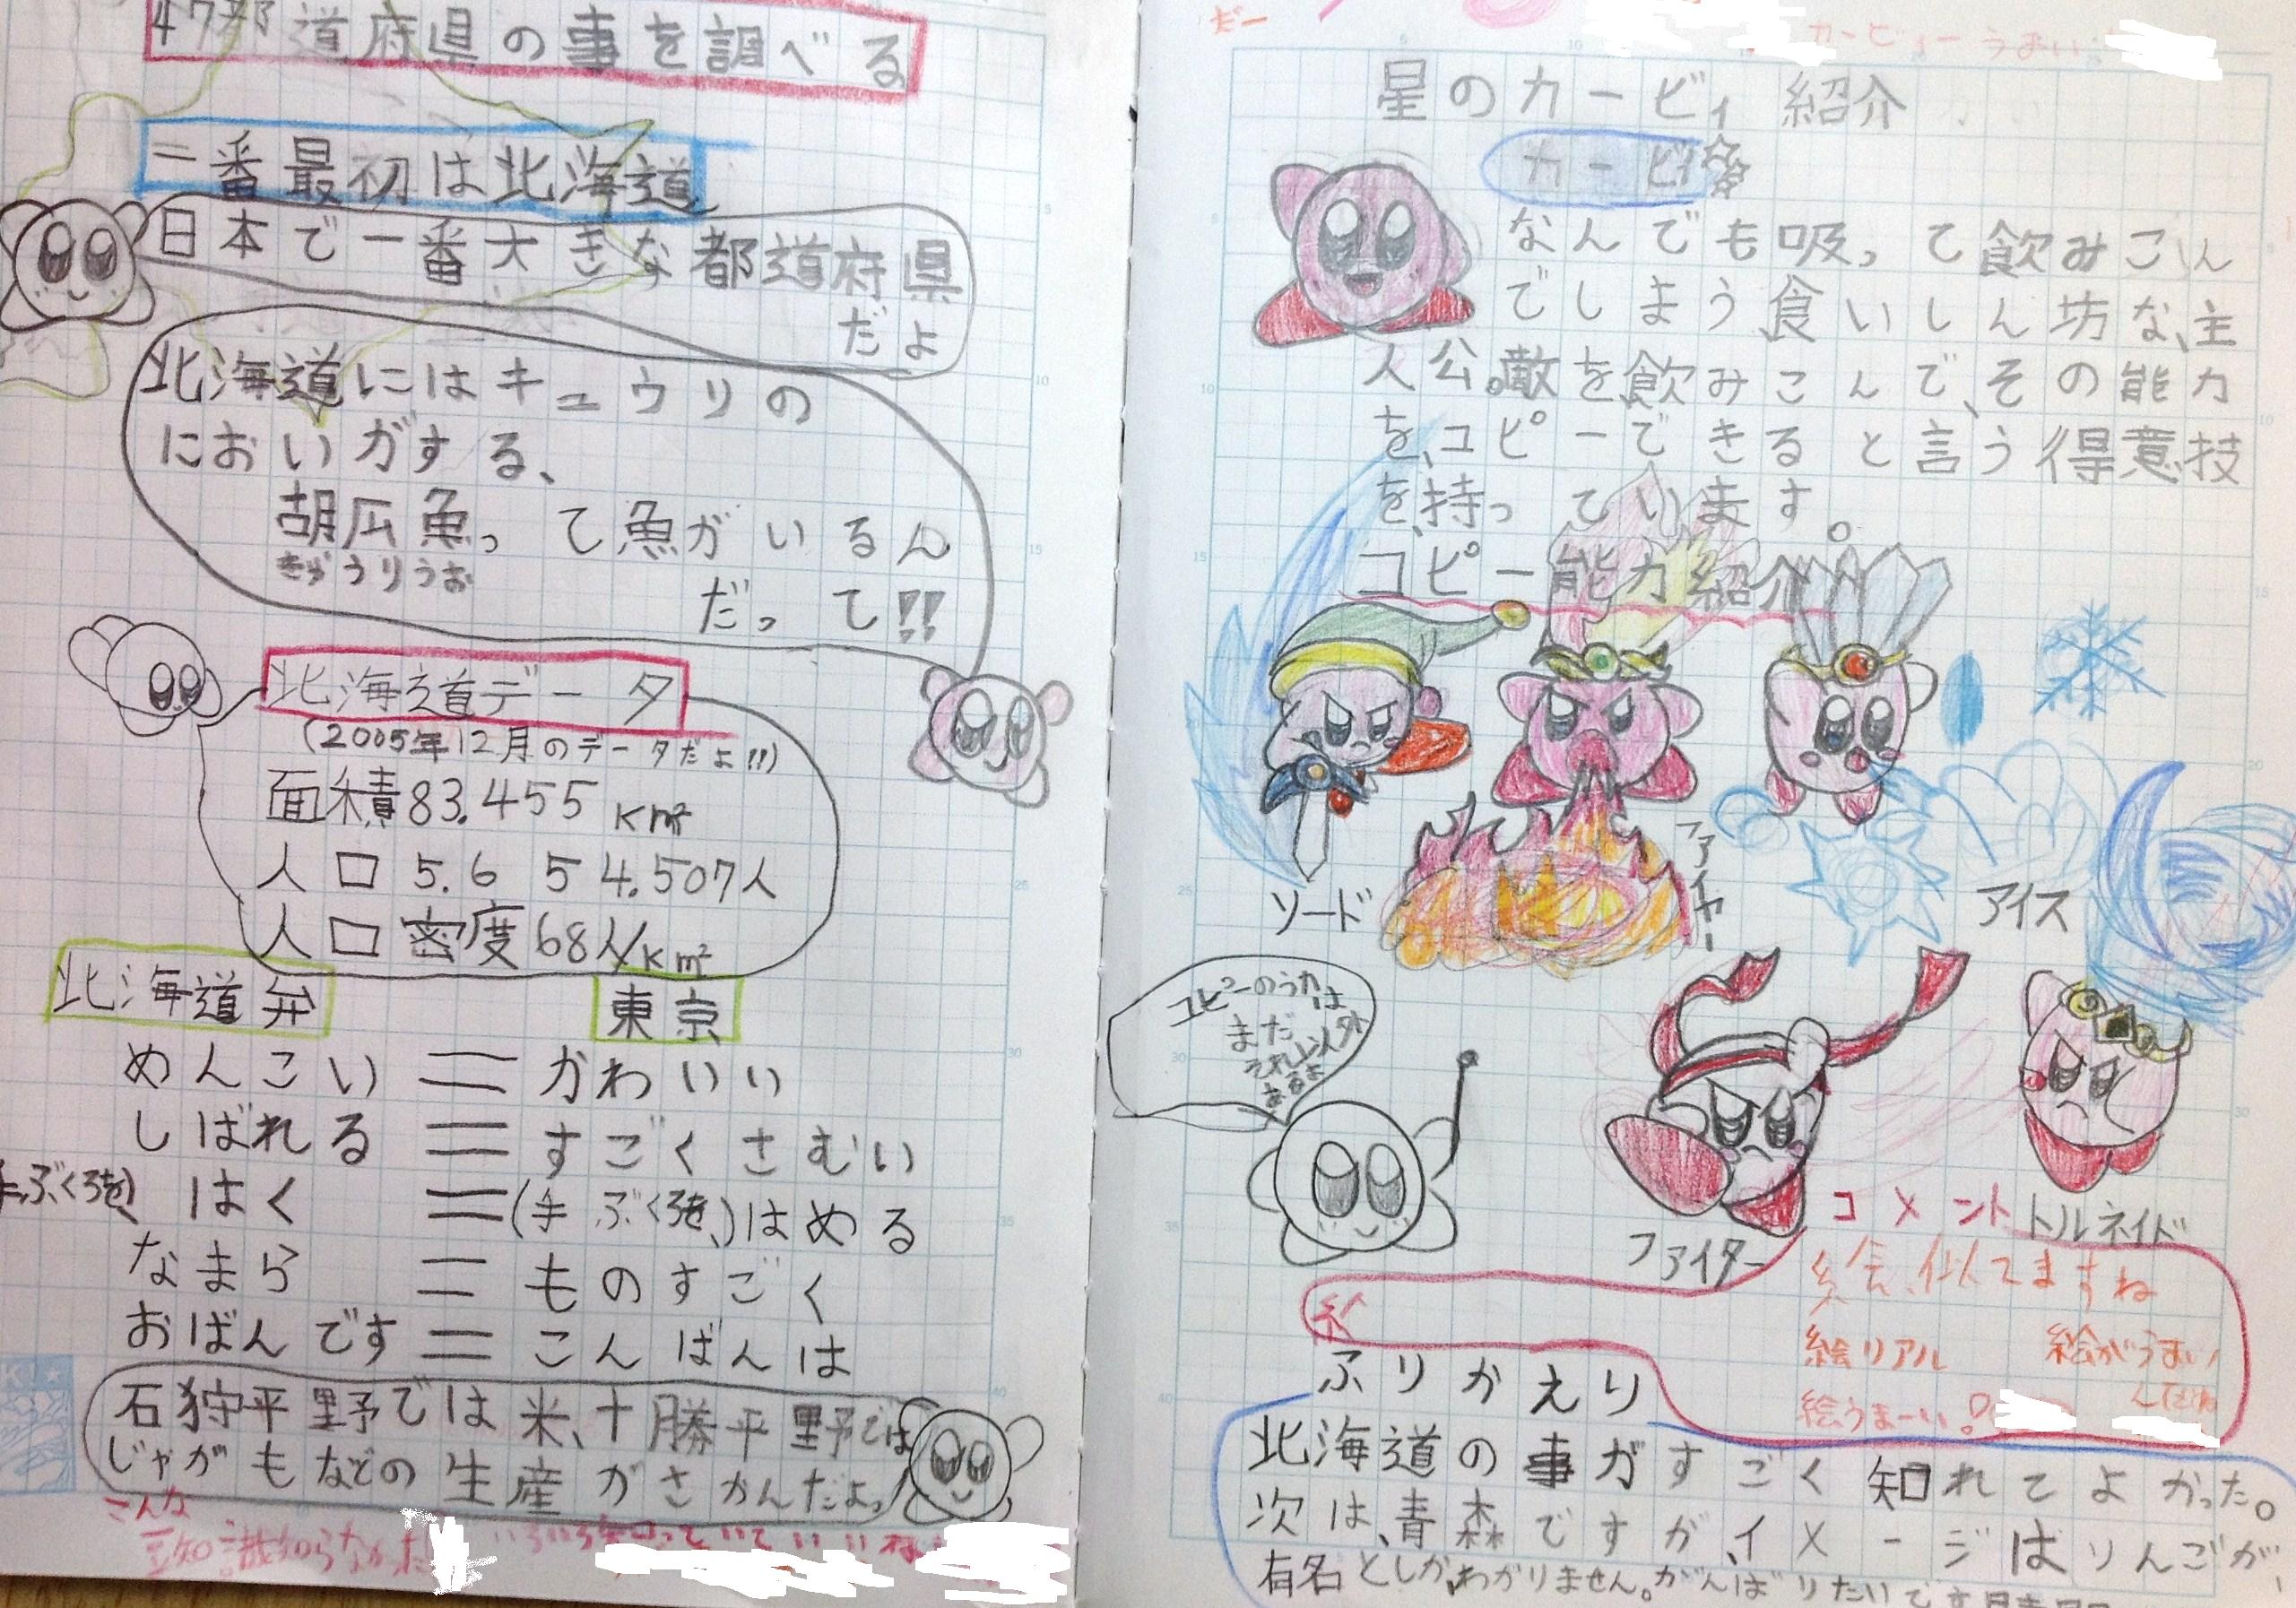 47都道府県の事を調べる
一番最初は北海道
日本で一番大きな都道府県
だよ
北海道にはキュウリの
においがする、
胡瓜魚って魚がいるん
きゅうりうお
だって!!
北海道データ
(2005年12月のデータだよ!!)
面積83.455km²
人口5.654.507人
人口密度68人/km²
北海道弁 東京
めんこい=かわいい
しばれる=すごくさむい
(手ぶくろを)はく=(手ぶくろを)はめる
なまら=ものすごく
おばんです=こんばんは
石狩平野では米、十勝平野では
じゃがもなどの生産がさかんだよっ
こんな
豆知識知らなかった
いろいろ知っていていいね
だー
カービィーうまい
星のカービィ 紹介
カービィ
なんでも吸って飲みこん
でしまう食いしん坊な、主
人公。敵を飲みこんで、その能力
を、コピーできると言う得意技
を、持っています。
コピー能力紹介
ソード
ファイヤー
アイス
コピーのう力は
まだ
それ以外
あるよ
ファイター
トルネイド
コメント
絵、似てますね
絵リアル 絵がうまい
絵うまーい!
ふりかえり
北海道の事がすごく知れてよかった。
次は、青森ですが、イメージはりんごが、
有名としかわかりません。がんばりたいです